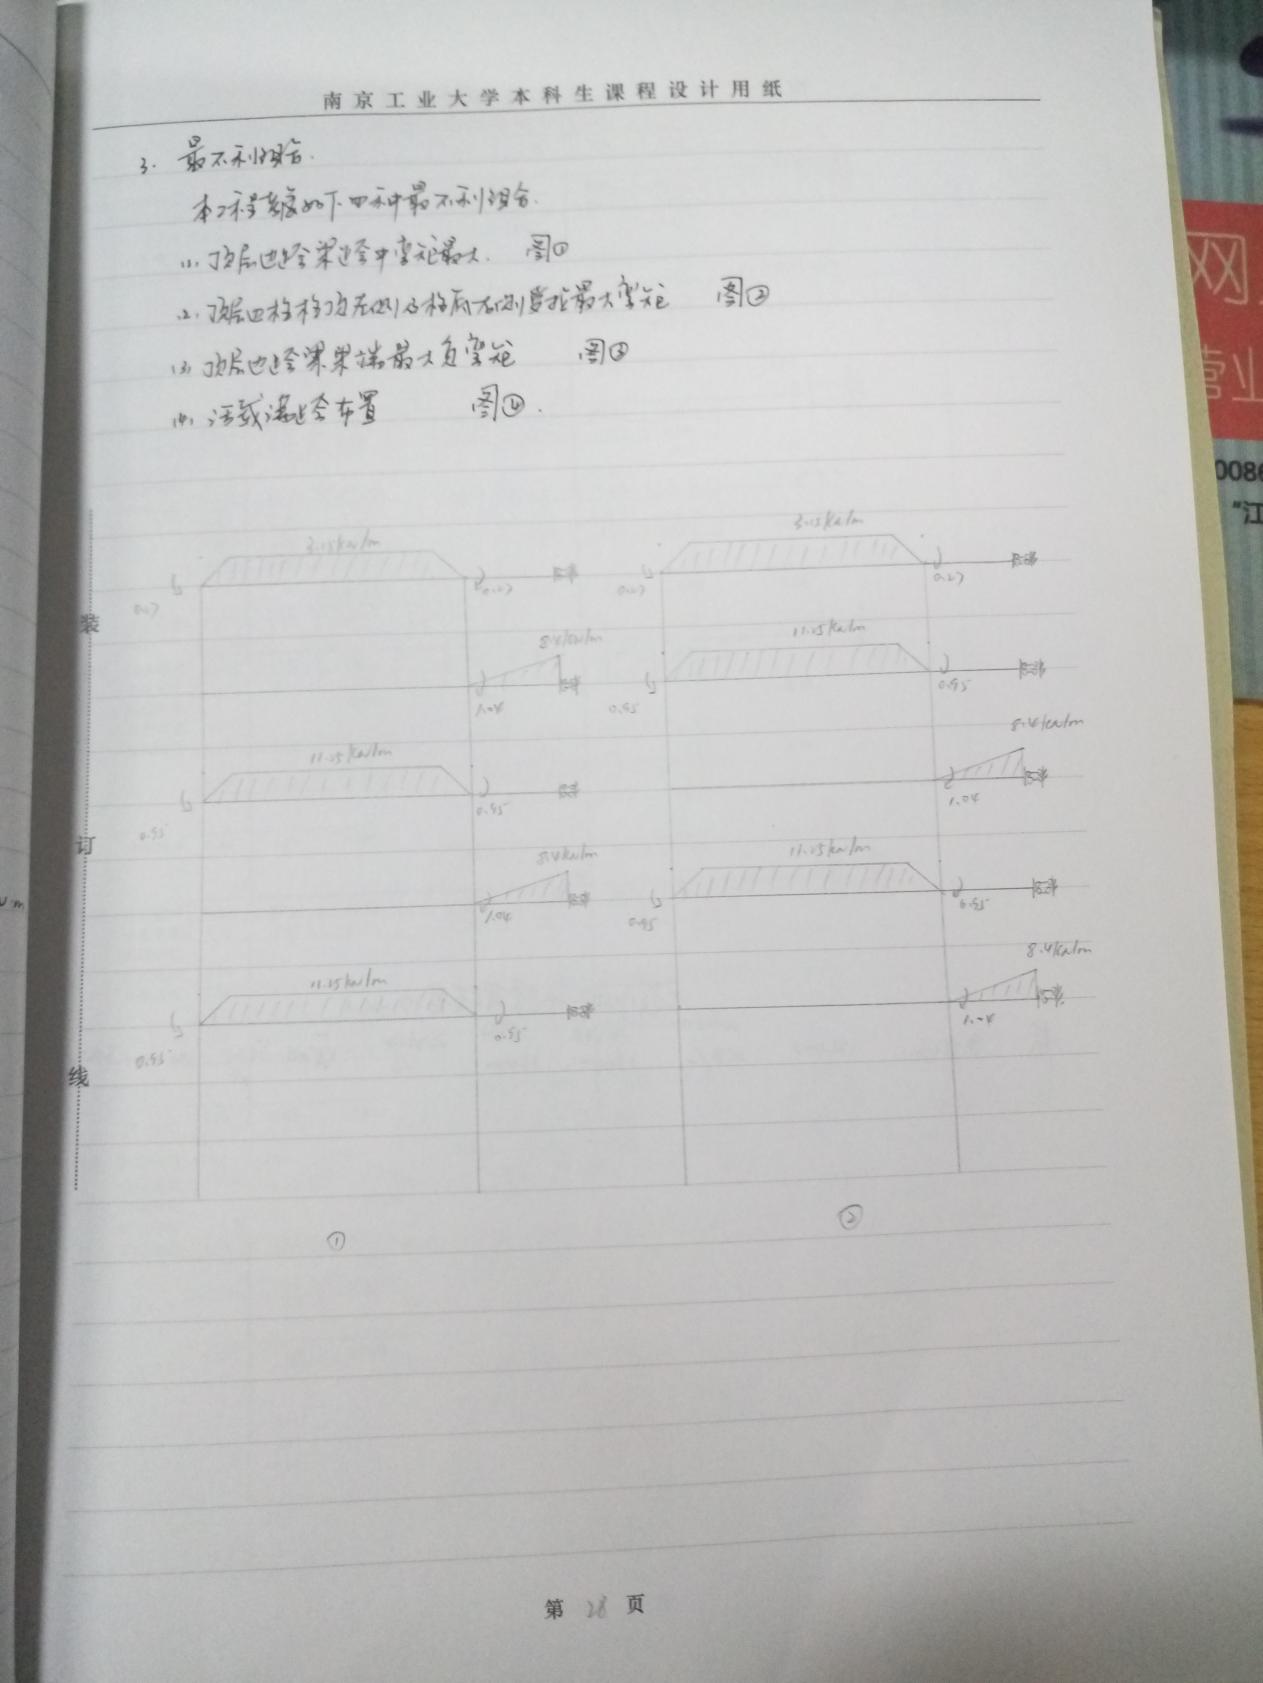 南京工业大学本科生课程设计用纸
3. 最不利组合.
本工程考虑如下四种最不利组合.
(1) 顶层边跨梁跨中弯矩最大. 图①
(2) 顶层边柱柱顶左侧及柱底右侧受拉最大弯矩 图②
(3) 顶层边跨梁梁端最大负弯矩 图③
(4) 活载满跨布置 图④.
3.15kN/m
0.27
0.27
8.4kN/m
1.04
11.25kN/m
0.95
0.95
8.4kN/m
1.04
11.25kN/m
0.95
0.95
①
3.15kN/m
0.27
0.27
11.25kN/m
0.95
0.95
8.4kN/m
1.04
11.25kN/m
0.95
0.95
8.4kN/m
1.04
②
装
订
线
第 28 页
网
营业
0086
“江